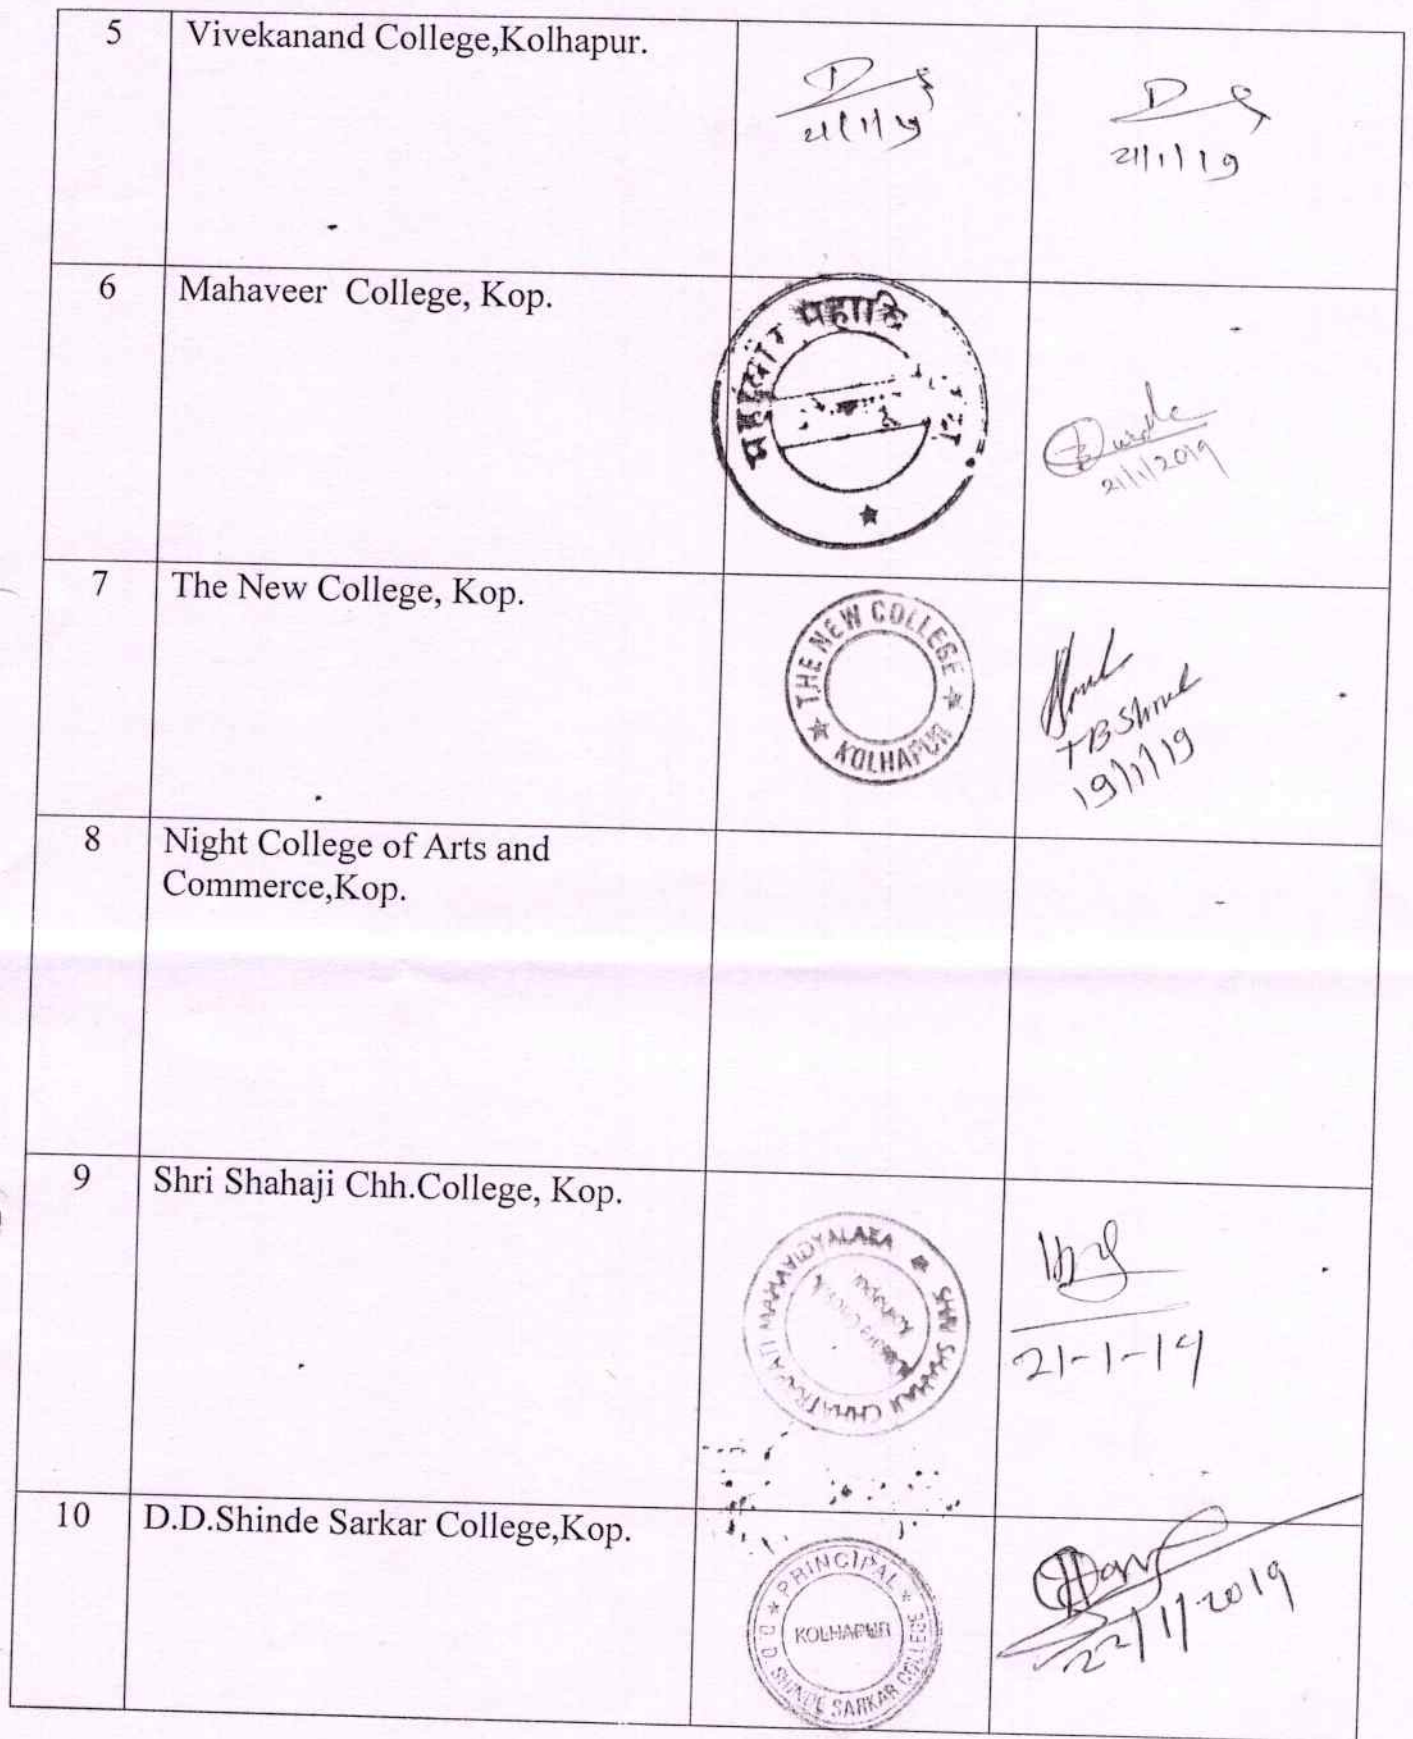 5 Vivekanand College,Kolhapur.
21/1/19
21/1/19
6 Mahaveer College, Kop.
21/1/2019
7 The New College, Kop.
THE NEW COLLEGE
KOLHAPUR
TB Shruk
19/1/19
8 Night College of Arts and
Commerce,Kop.
9 Shri Shahaji Chh.College, Kop.
SHRI SHAHAJI CHHATRAPATI MAHAVIDYALAYA
21-1-19
10 D.D.Shinde Sarkar College,Kop.
PRINCIPAL
D.D. SHINDE SARKAR COLLEGE
KOLHAPUR
22/1/2019